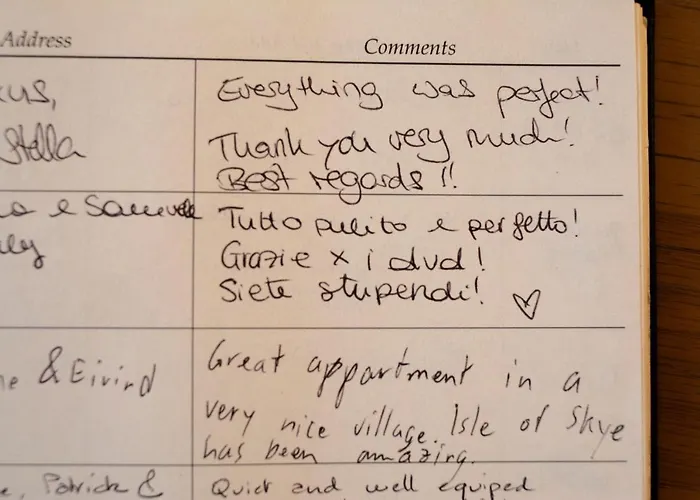 Address Comments
Everything was perfect!
Stella Thank you very much!
Best regards !!
e Samuele Tutto pulito e perfetto!
Grazie x i dvd!
Siete stupendi! ♡
& Eivind Great appartment in a
very nice village. Isle of Skye
has been amazing.
Patrick & Quiet and well equiped